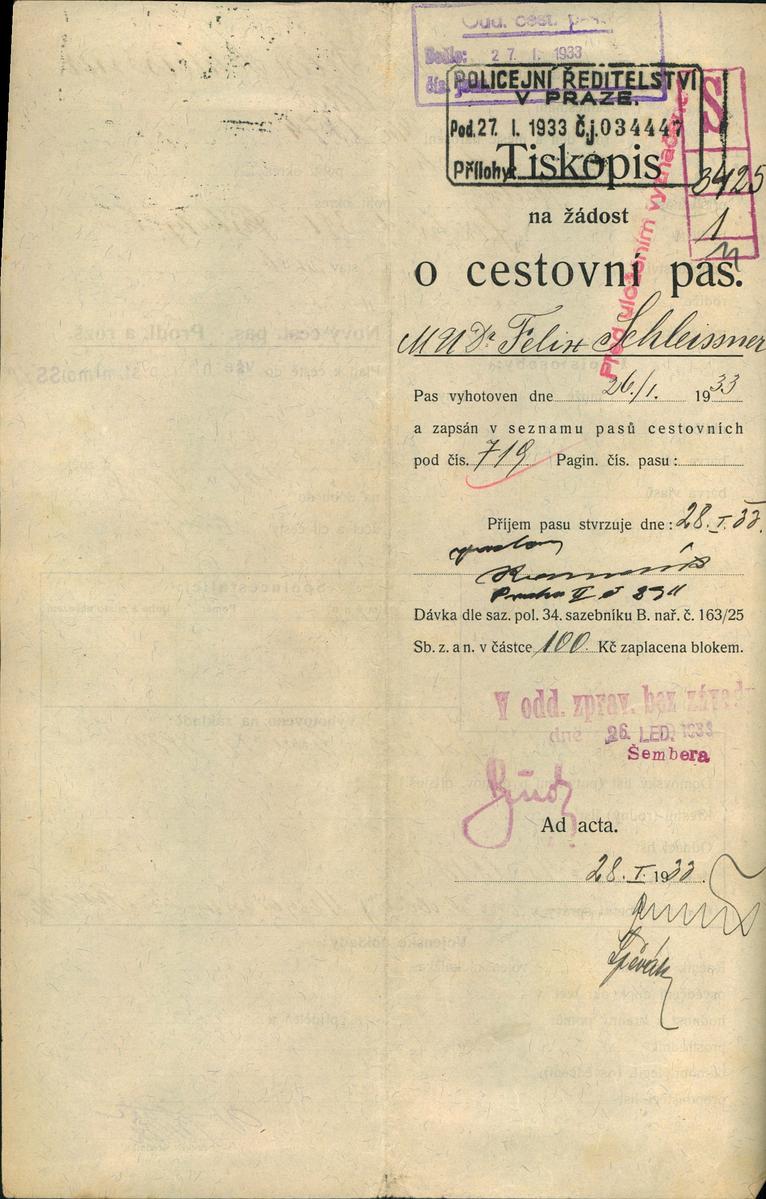 Odd. cest. pas.
Došlo: 27. I. 1933
čís. j.
POLICEJNÍ ŘEDITELSTVÍ
V PRAZE.
Pod. 27. I. 1933 Č.j. 034447
Přílohy:
S
3425
1
Tiskopis
na žádost
o cestovní pas.
Před uložením vyznačeno
MUDr Felix Schleissner
Pas vyhotoven dne 26/I. 1933
a zapsán v seznamu pasů cestovních
pod čís. 719 Pagin. čís. pasu:
Příjem pasu stvrzuje dne: 28. I. 33.
Praha II
Dávka dle saz. pol. 34. sazebníku B. nař. č. 163/25
Sb. z. a n. v částce 100 Kč zaplacena blokem.
V odd. zprav. bez závady
dne 26. LED. 1933
Šembera
Ad acta.
28. I. 1933.